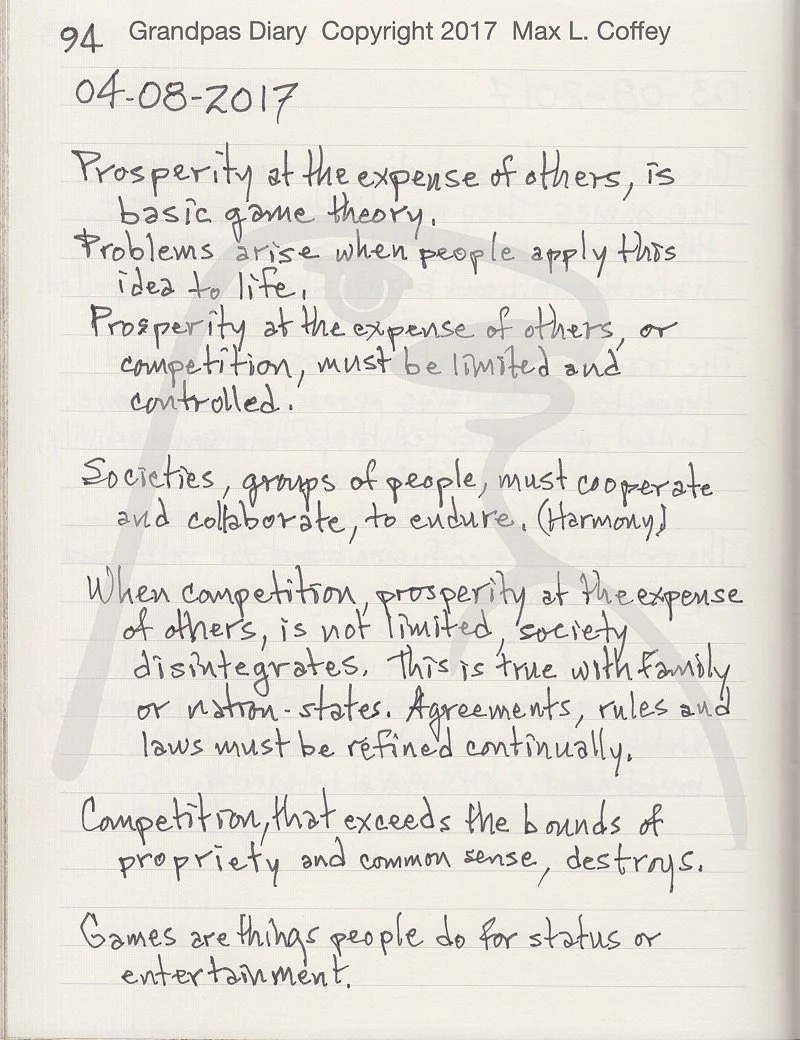 94 Grandpas Diary Copyright 2017 Max L. Coffey
04-08-2017
Prosperity at the expense of others, is
basic game theory.
Problems arise when people apply this
idea to life.
Prosperity at the expense of others, or
competition, must be limited and
controlled.
Societies, groups of people, must cooperate
and collaborate, to endure. (Harmony)
When competition, prosperity at the expense
of others, is not limited, society
disintegrates. This is true with family
or nation-states. Agreements, rules and
laws must be refined continually.
Competition, that exceeds the bounds of
propriety and common sense, destroys.
Games are things people do for status or
entertainment.